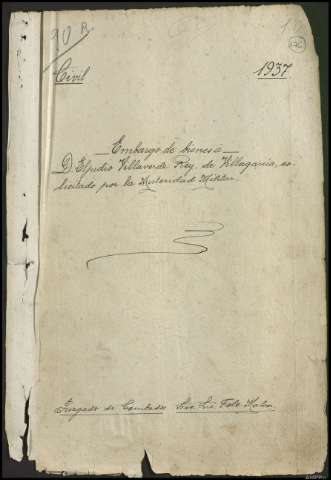 90 R
176
Civil
1937
Embargo de bienes a
D. Elpidio Villaverde Rey, de Villagarcía, so-
licitado por la Autoridad Militar.
Juzgado de Cambados Srio. Lic.